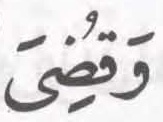 وَقُضِىَ